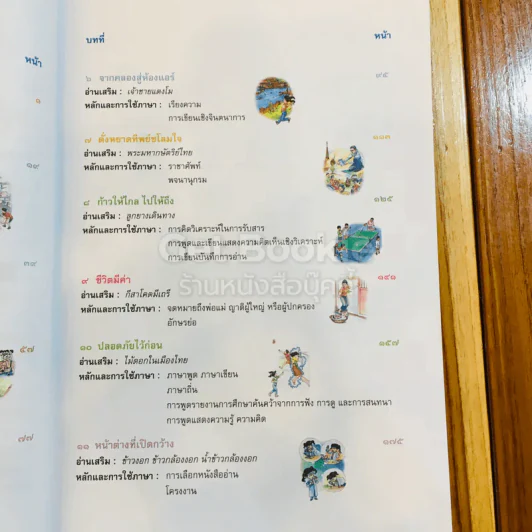 หน้า
๑
๑๙
๓๙
๕๗
๗๗
บทที่ หน้า
๖ จากคลองสู่ห้องแอร์ ๙๕
อ่านเสริม : เจ้าชายแตงโม
หลักและการใช้ภาษา : เรียงความ
การเขียนเชิงจินตนาการ
๗ ดั่งหยาดทิพย์ชโลมใจ ๑๑๓
อ่านเสริม : พระมหากษัตริย์ไทย
หลักและการใช้ภาษา : ราชาศัพท์
พจนานุกรม
๘ ก้าวให้ไกล ไปให้ถึง ๑๒๕
อ่านเสริม : ลูกยางเดินทาง
หลักและการใช้ภาษา : การคิดวิเคราะห์ในการรับสาร
การพูดและเขียนแสดงความคิดเห็นเชิงวิเคราะห์
การเขียนบันทึกการอ่าน
๙ ชีวิตมีค่า ๑๔๑
อ่านเสริม : กีสาโคตมีเถรี
หลักและการใช้ภาษา : จดหมายถึงพ่อแม่ ญาติผู้ใหญ่ หรือผู้ปกครอง
อักษรย่อ
๑๐ ปลอดภัยไว้ก่อน ๑๕๗
อ่านเสริม : ไม้ดอกในเมืองไทย
หลักและการใช้ภาษา : ภาษาพูด ภาษาเขียน
ภาษาถิ่น
การพูดรายงานการศึกษาค้นคว้าจากการฟัง การดู และการสนทนา
การพูดแสดงความรู้ ความคิด
๑๑ หน้าต่างที่เปิดกว้าง ๑๗๕
อ่านเสริม : ข้าวงอก ข้าวกล้องงอก น้ำข้าวกล้องงอก
หลักและการใช้ภาษา : การเลือกหนังสืออ่าน
โครงงาน
ร้านหนังสือบุ๊คคุ้